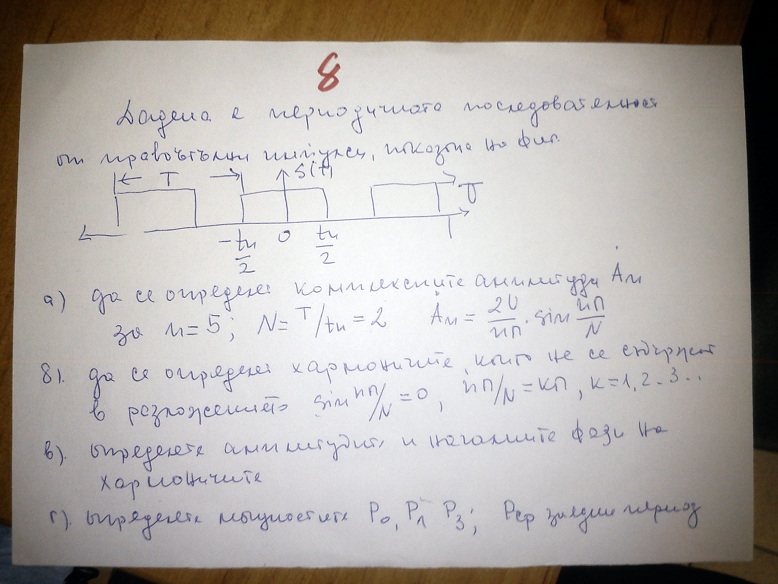 8
Дадена е периодичната последователност
от правоъгълни импулси, показана на фиг.
T S(t) U
-tи/2 0 tи/2
а) да се определят комплексните амплитуди Ȧn
за n=5; N=T/tи=2 Ȧn=2U/nπ·sin nπ/N
б). да се определят хармониците, които не се съдържат
в разложението sin nπ/N=0, nπ/N=kπ, k=1,2.3...
в). определете амплитудите и началните фази на
хармониците
г). определете мощностите P0, P1 P3; Pср за един период